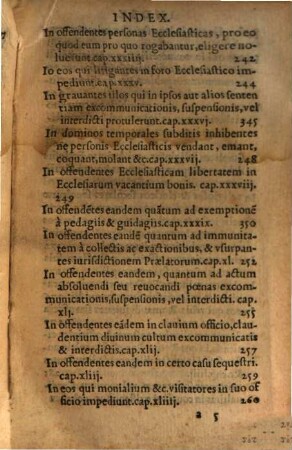 INDEX.
In offendentes personas Ecclesiasticas, pro eo
quod eum pro quo rogabantur, eligere no-
luerunt. cap. xxxiiij. 242
Io eos qui litigantes in foro Ecclesiastico im-
pediunt. cap. xxxv. 244
In grauantes illos qui in ipsos aut alios senten
tiam excommunicationis, suspensionis, vel
interdicti protulerunt. cap. xxxvj. 345
In dominos temporales subditis inhibentes
ne personis Ecclesiasticis vendant, emant,
coquant, molant &c. cap. xxxvij. 248
In offendentes Ecclesiasticam libertatem in
Ecclesiarum vacantium bonis. cap. xxxviij.
249
In offendētes eandem quātum ad exemptionē
à pedagiis & guidagiis. cap. xxxix. 350
In offendentes eandē quantum ad immunita-
tem à collectis ac exactionibus, & vsurpan-
tes iurisdictionem Prælatorum. cap. xl. 252
In offendentes eandem, quantum ad actum
absoluendi seu reuocandi pœnas excom-
municationis, suspensionis, vel interdicti. cap.
xlj. 255
In offendentes eādem in clauium officio, clau-
dentium diuinum cultum excommunicatis
& interdictis. cap. xlij. 257
In offendentes eandem in certo casu sequestri.
cap. xliij. 259
In eos qui monialium &c. visitatores in suo of
ficio impediunt. cap. xliiij. 260
a 5